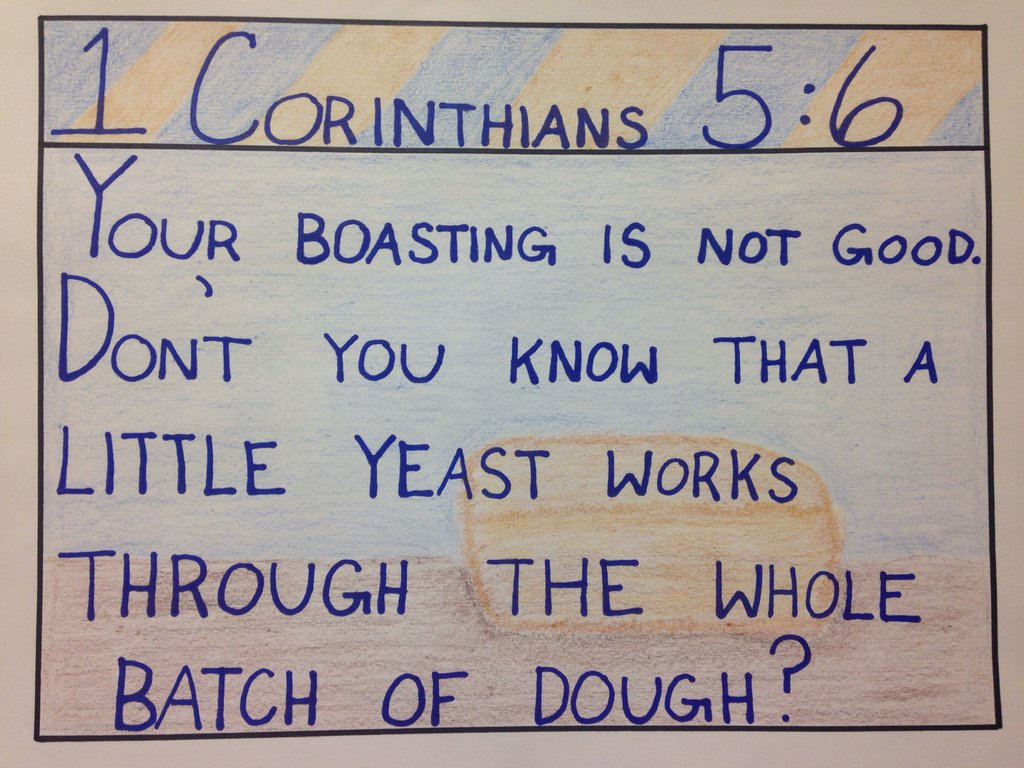 1 CORINTHIANS 5:6
YOUR BOASTING IS NOT GOOD.
DON'T YOU KNOW THAT A
LITTLE YEAST WORKS
THROUGH THE WHOLE
BATCH OF DOUGH?